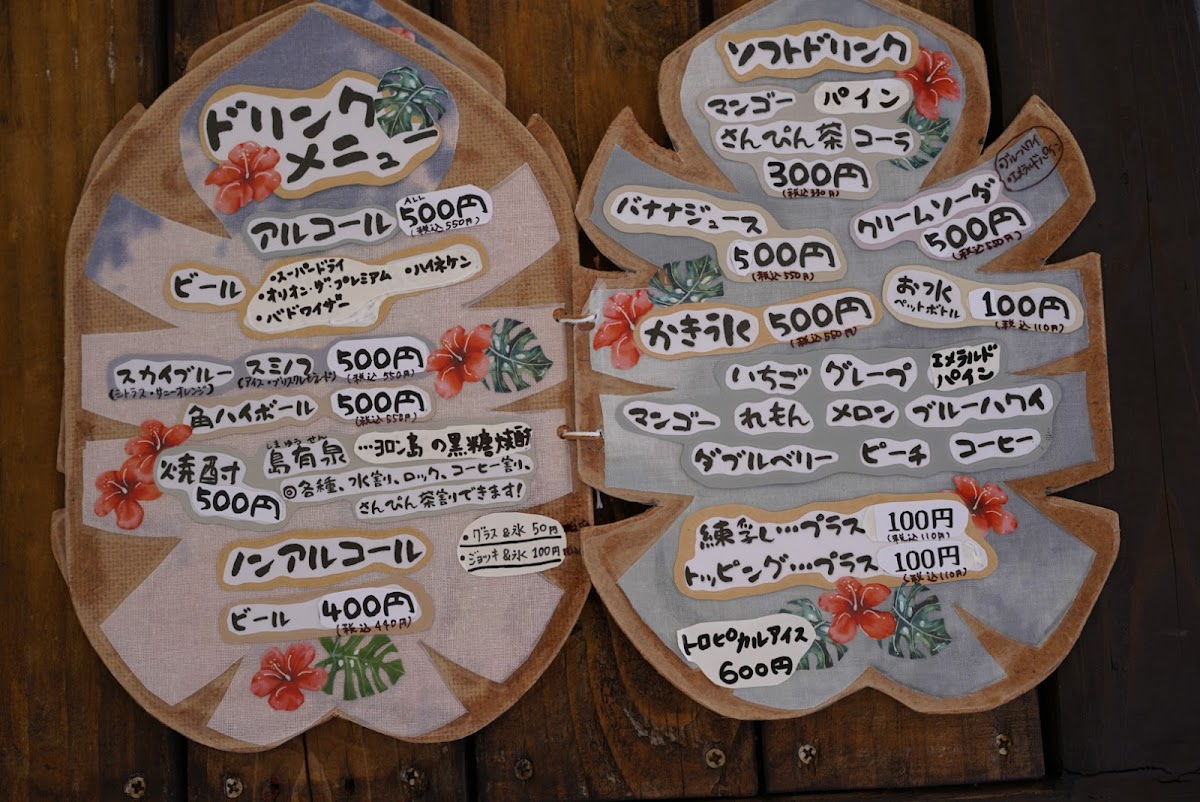 ドリンク
メニュー
アルコール ALL 500円
(税込550円)
ビール
・スーパードライ
・ハイネケン
・オリオン・ザ・プレミアム
・バドワイザー
スカイブルー スミノフ 500円
(シトラス・サニーオレンジ) (税込550円)
角ハイボール 500円
(税込550円)
しまゆうせん
焼酎 島有泉 …ヨロン島の黒糖焼酎
500円 ◎各種、水割り、ロック、コーヒー割り、
さんぴん茶割りできます!
ノンアルコール
・グラス&氷 50円
・ジョッキ&氷 100円
ビール 400円
(税込440円)
ソフトドリンク
マンゴー パイン
さんぴん茶 コーラ
300円
(税込330円)
バナナジュース
500円
(税込550円)
・ブルーハワイ
・エメラルドパイン
クリームソーダ
500円
(税込550円)
かき氷 500円
(税込550円)
お水
ペットボトル
100円
(税込110円)
いちご グレープ エメラルドパイン
マンゴー れもん メロン ブルーハワイ
ダブルベリー ピーチ コーヒー
練乳…プラス 100円
(税込110円)
トッピング…プラス 100円
(税込110円)
トロピカルアイス
600円